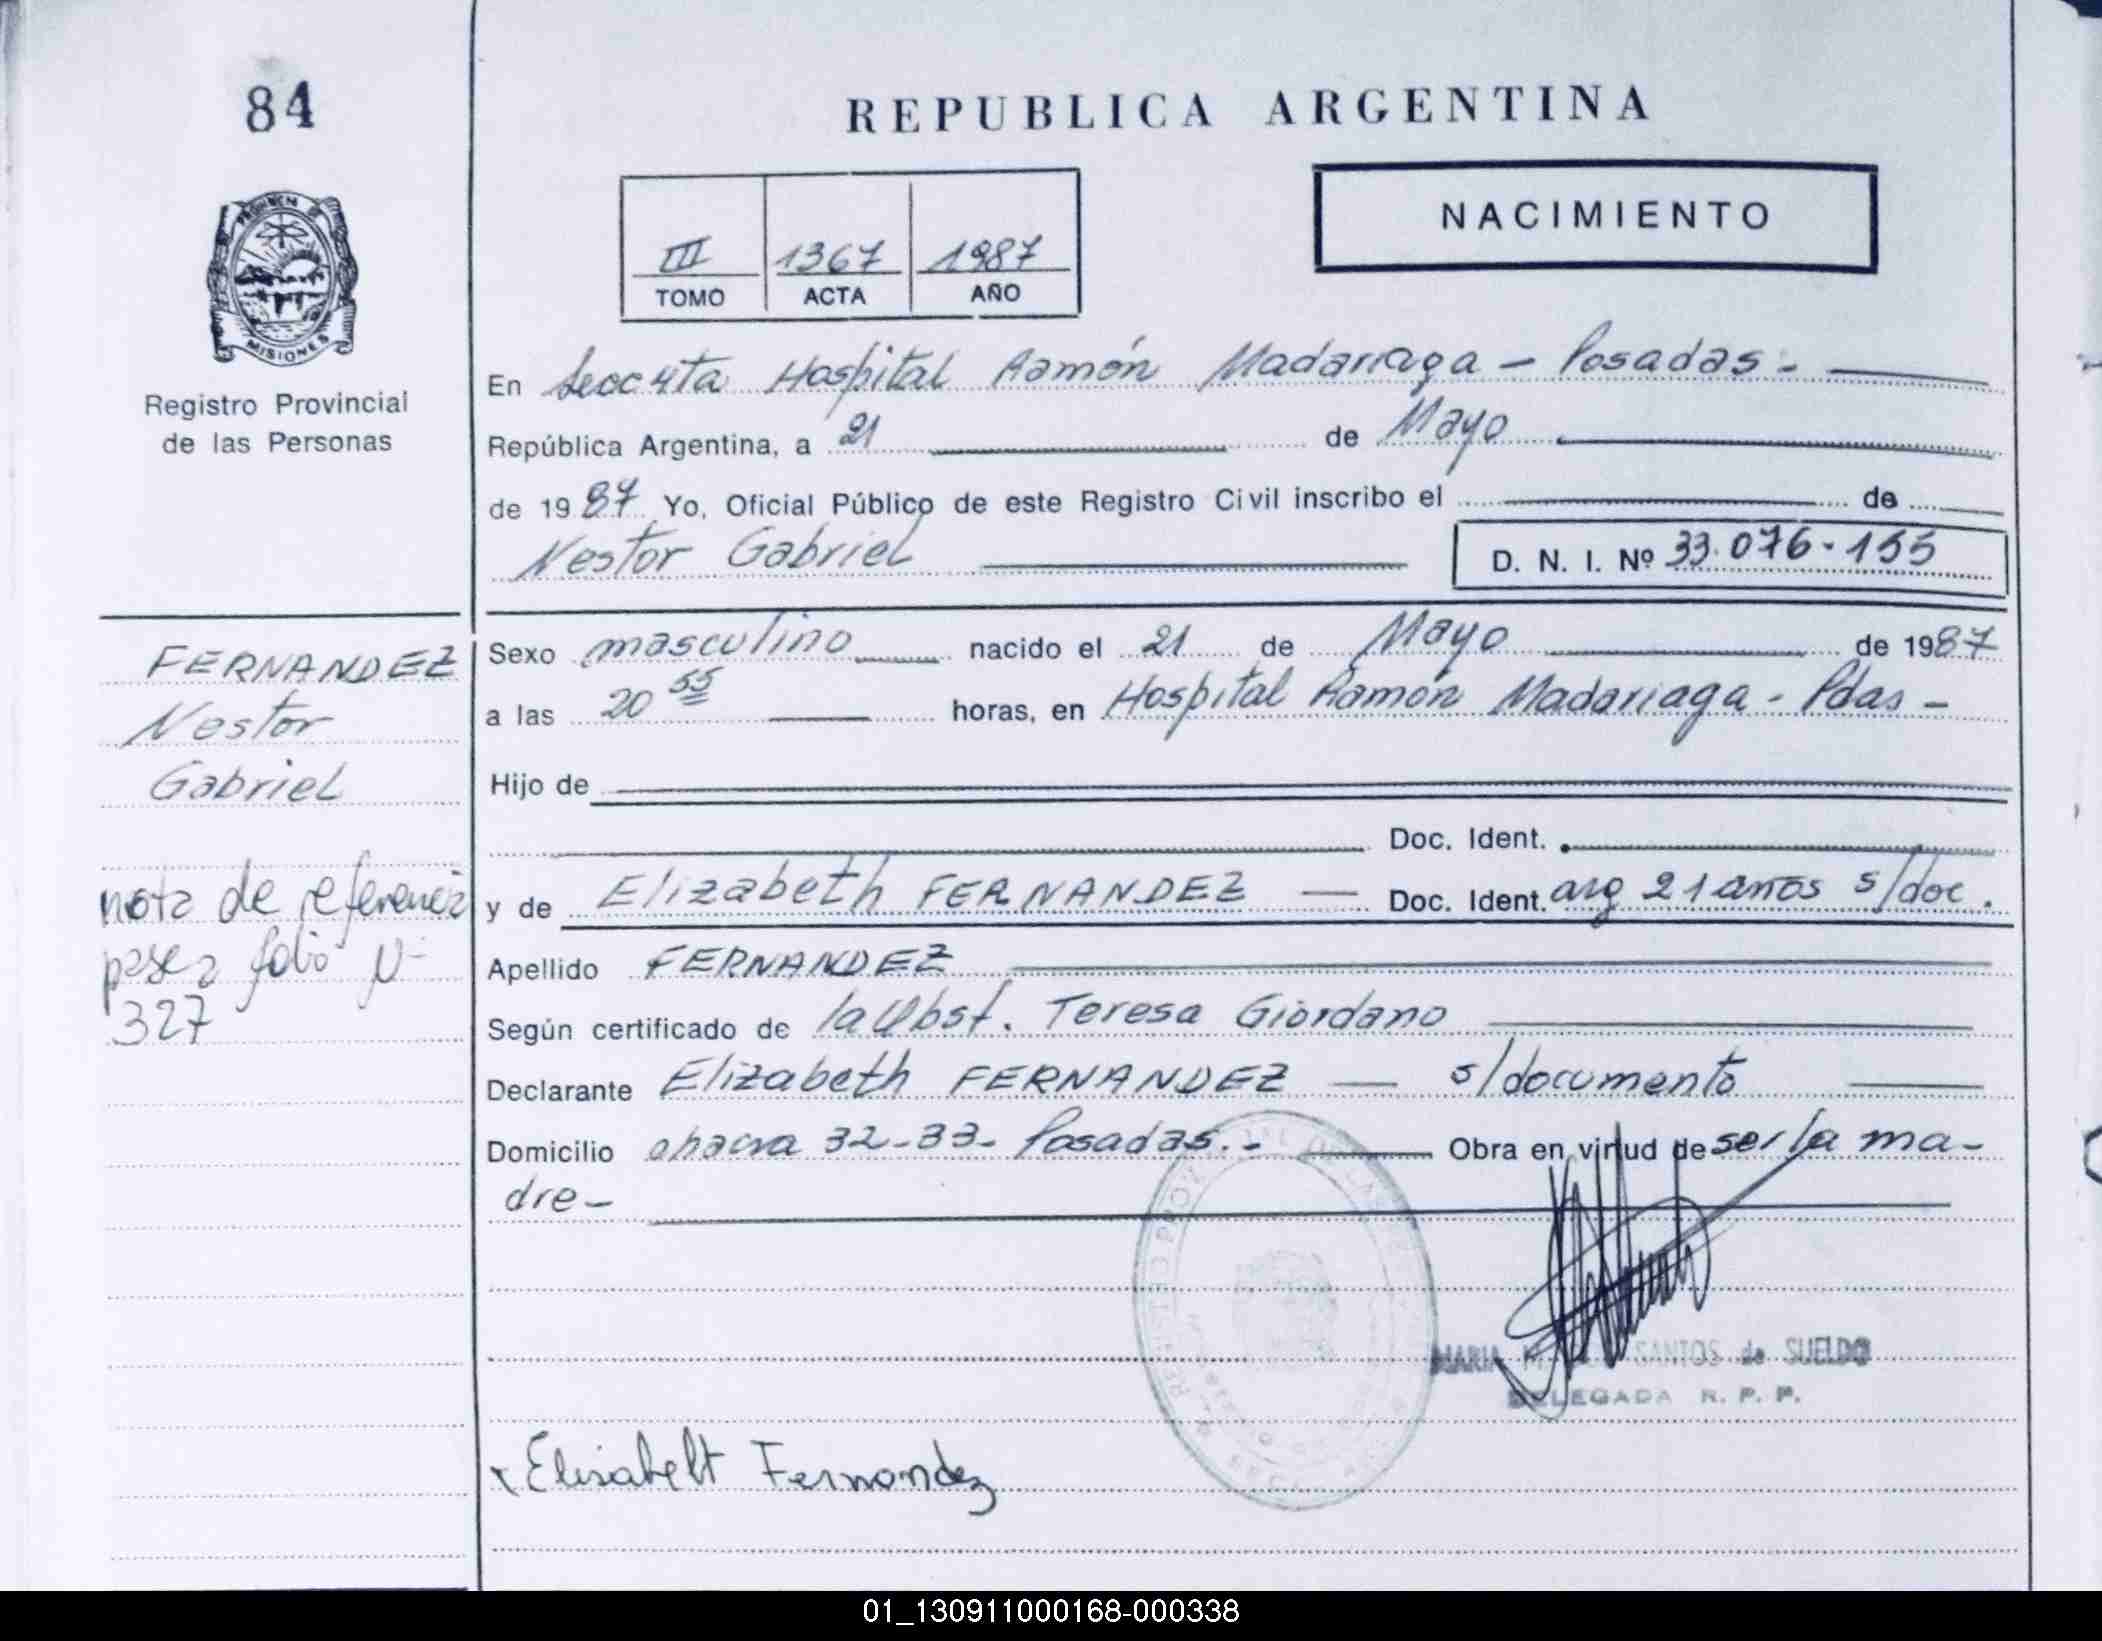 84
REPUBLICA ARGENTINA
NACIMIENTO
III 1367 1987
TOMO ACTA AÑO
PROVINCIA D
MISIONES
Registro Provincial
de las Personas
En Secc 4ta Hospital Ramón Madariaga - Posadas.-
República Argentina, a 21 de Mayo
de 1987 Yo, Oficial Público de este Registro Civil inscribo el de
Nestor Gabriel D. N. I. Nº 33.076.155
FERNANDEZ
Nestor
Gabriel
nota de referencia
pase a folio Nº
327
Sexo masculino nacido el 21 de Mayo de 1987
a las 20 55 horas, en Hospital Ramón Madariaga - Pdas -
Hijo de
Doc. Ident.
y de Elizabeth FERNANDEZ — Doc. Ident. arg 21 años s/doc.
Apellido FERNANDEZ
Según certificado de la Obst. Teresa Giordano
Declarante Elizabeth FERNANDEZ — s/documento
Domicilio chacra 32-33- Posadas.- Obra en virtud de ser la ma-
dre-
MARIA SANTOS de SUELDO
DELEGADA R. P. P.
x Elisabelt Fernandez
01_130911000168-000338